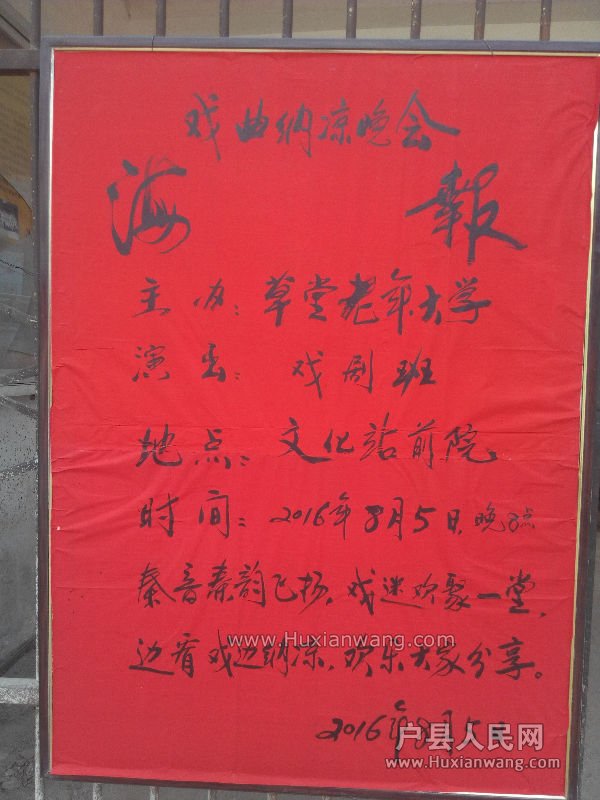 戏曲纳凉晚会
海 報
主办：草堂老年大学
演出：戏剧班
地点：文化站前院
时间：2016年8月5日晚8点
秦音秦韵飞扬，戏迷欢聚一堂，
边看戏边纳凉，欢乐大家分享。
www.Huxianwang.com
2016年8月5日
户县人民网
www.Huxianwang.com